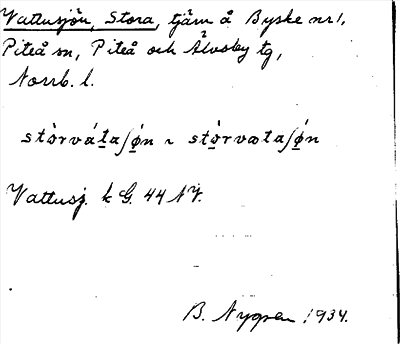 Vattusjön, Stora, tjärn å Byske nr 1,
Piteå sn, Piteå och Älvsby tg,
Norrb. l.
stòrvátaʃøn ~ stòrvataʃøn
Vattusj. k G. 44 NV.
B. Nygren 1934.